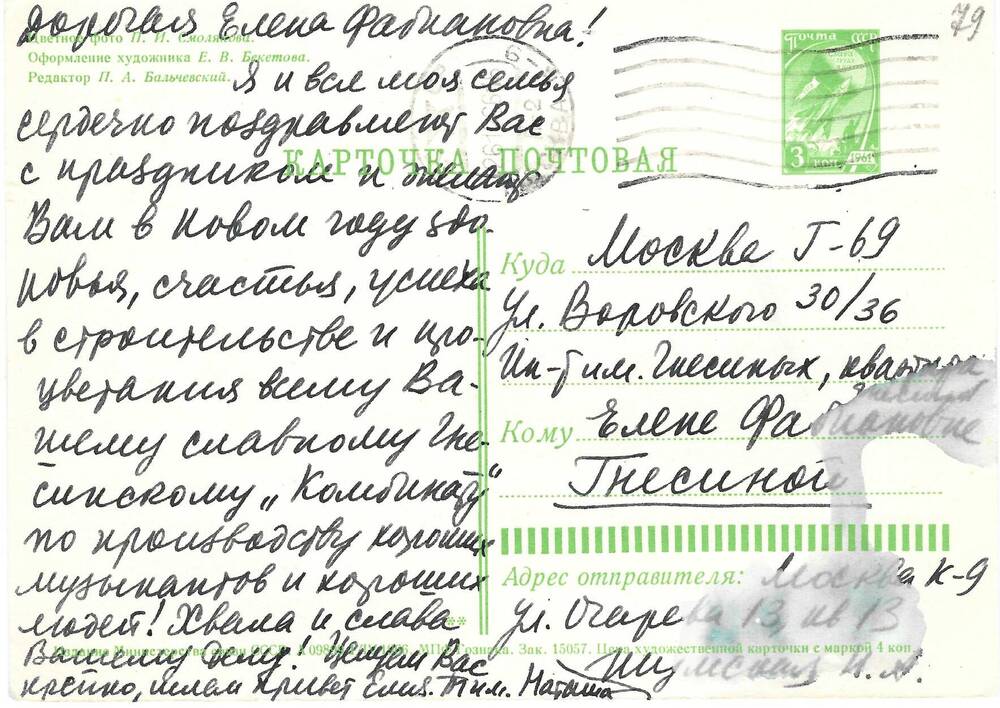 Дорогая Елена Фабиановна!
Цветное фото П. И. Смолякова.
Оформление художника Е. В. Бекетова.
Редактор П. А. Бальчевский.
Я и вся моя семья
сердечно поздравляем Вас
с праздником и желаем
Вам в Новом году здо-
ровья, счастья, успеха
в строительстве и про-
цветания всему Ва-
шему славному Гне-
синскому „Комбинату"
по производству хороших
музыкантов и хороших
людей! Хвала и слава
Вашему Дому! Целуем Вас
крепко, шлем привет Наташа
79
ПОЧТА СССР
3 КОП. 1961
КАРТОЧКА ПОЧТОВАЯ
Куда Москва Г-69
ул. Воровского 30/36
Ин-т им. Гнесиных, квартира
Гнесиной
Кому Елене Фабиановне
Гнесиной
Адрес отправителя: Москва К-9
ул. Огарева 13, кв 13
Издание Министерства связи СССР. МПФ Гознака. Зак. 15057. Цена художественной карточки с маркой 4 коп.